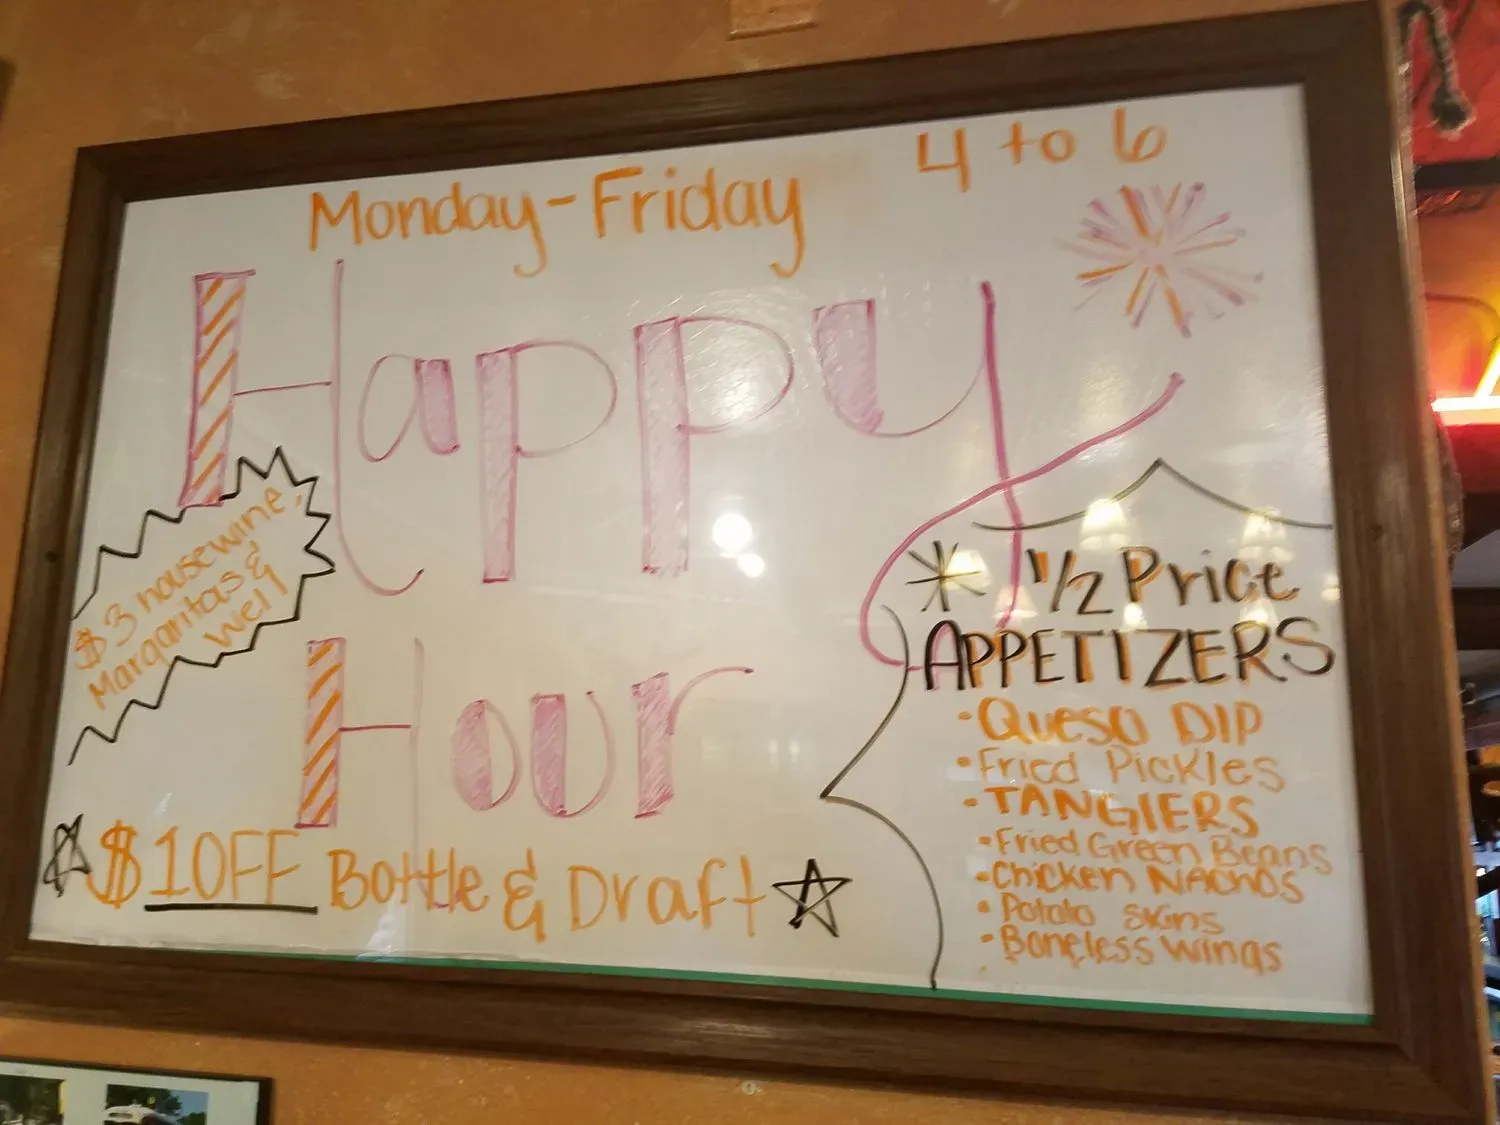 Monday-Friday 4 to 6
Happy
Hour
$3 housewine,
Margaritas &
Well
$1 OFF Bottle & Draft
* 1/2 Price
APPETIZERS
• Queso DIP
• Fried Pickles
• TANGIERS
• Fried Green Beans
• Chicken NACHOS
• Potato Skins
• Boneless Wings